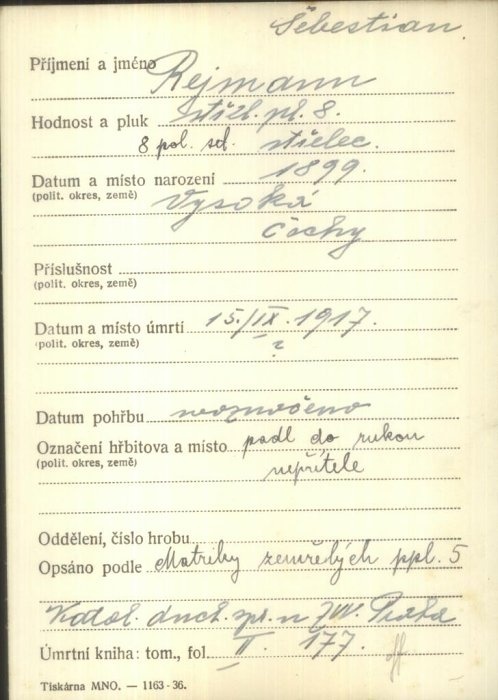 Šebestian
Příjmení a jméno Rejmann
Hodnost a pluk střel. pl. 8.
8 pol. set. střelec.
Datum a místo narození 1899.
(polit. okres, země) Vysoká
Čechy
Příslušnost
(polit. okres, země)
Datum a místo úmrtí 15./IX. 1917.
(polit. okres, země) ?
Datum pohřbu neoznačeno
Označení hřbitova a místo padl do rukou
(polit. okres, země) nepřítele
Oddělení, číslo hrobu
Opsáno podle Matriky zemřelých ppl. 5
Katol. duch. spr. n ZVV. Praha
Úmrtní kniha: tom., fol. II. 177.
Tiskárna MNO. — 1163-36.